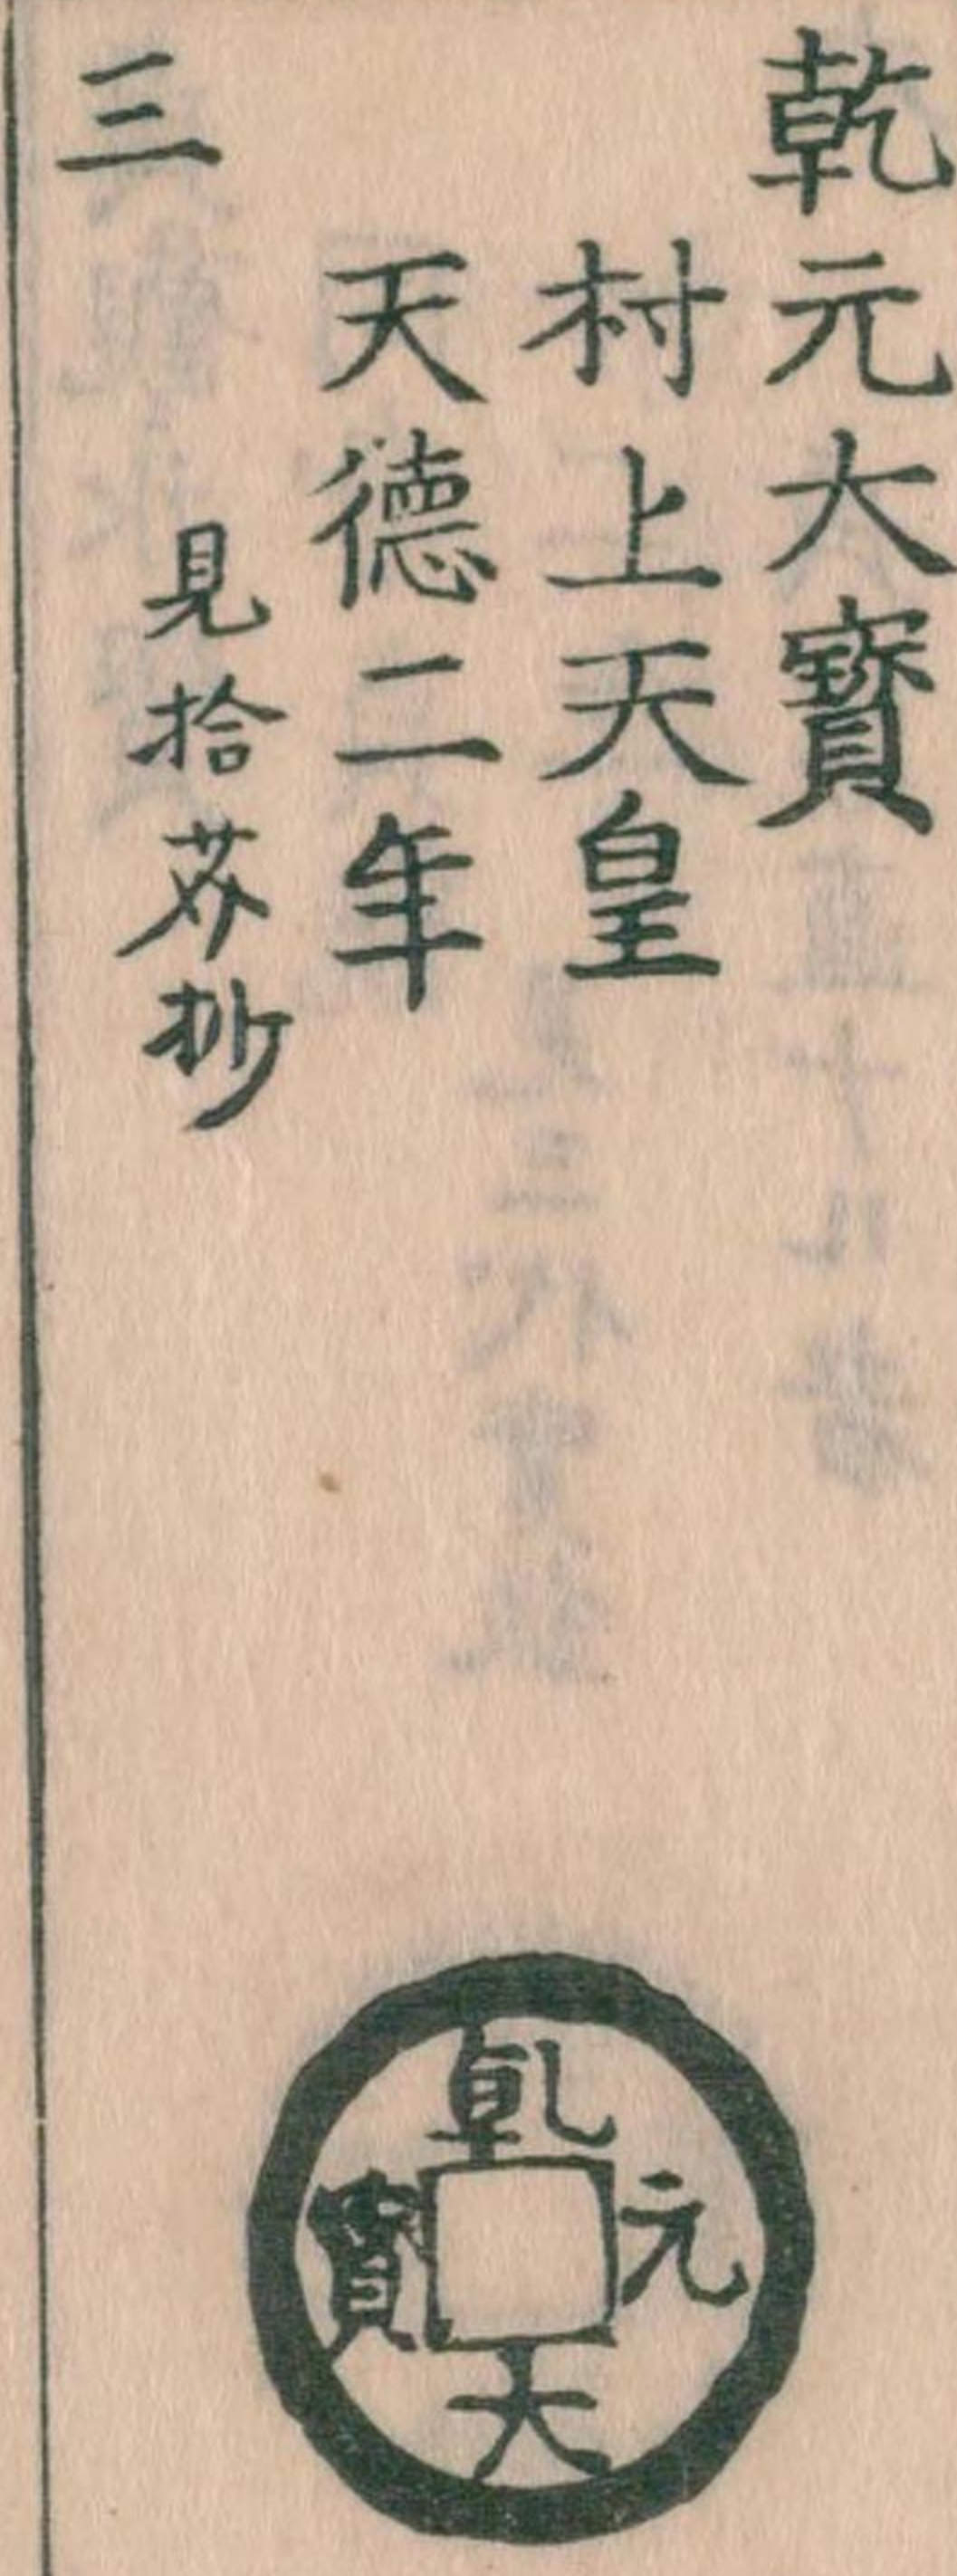 乾元大寳
村上天皇
天德二年
見拾芥抄
三
乹元大寳